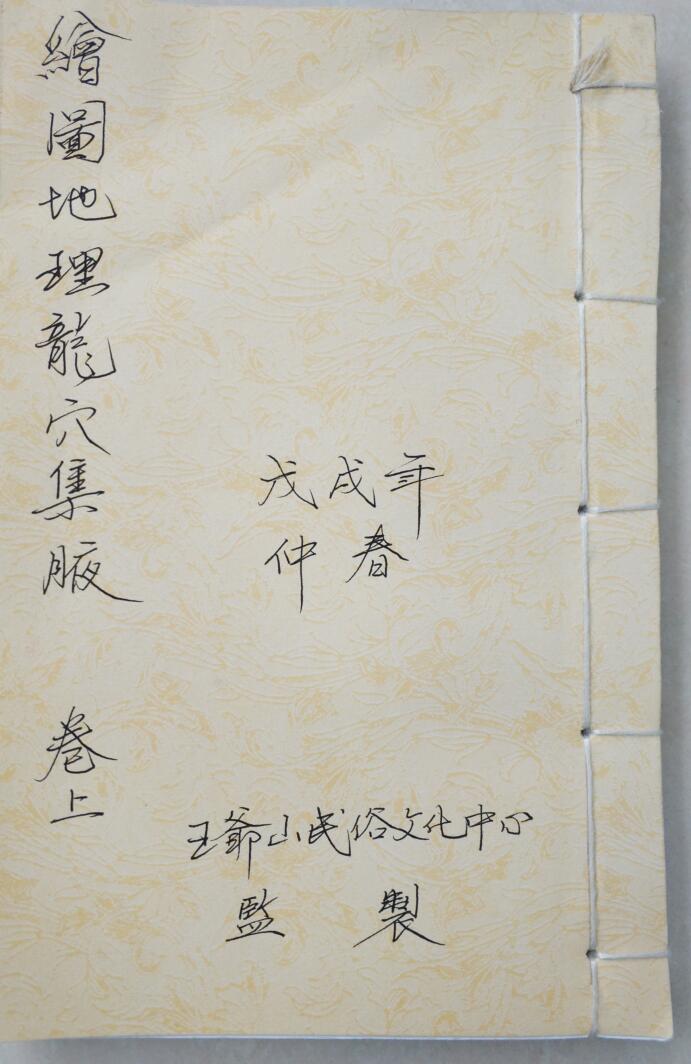 繪圖地理龍穴集腋
卷上
戊戌年
仲春
王爺山民俗文化中心
監製